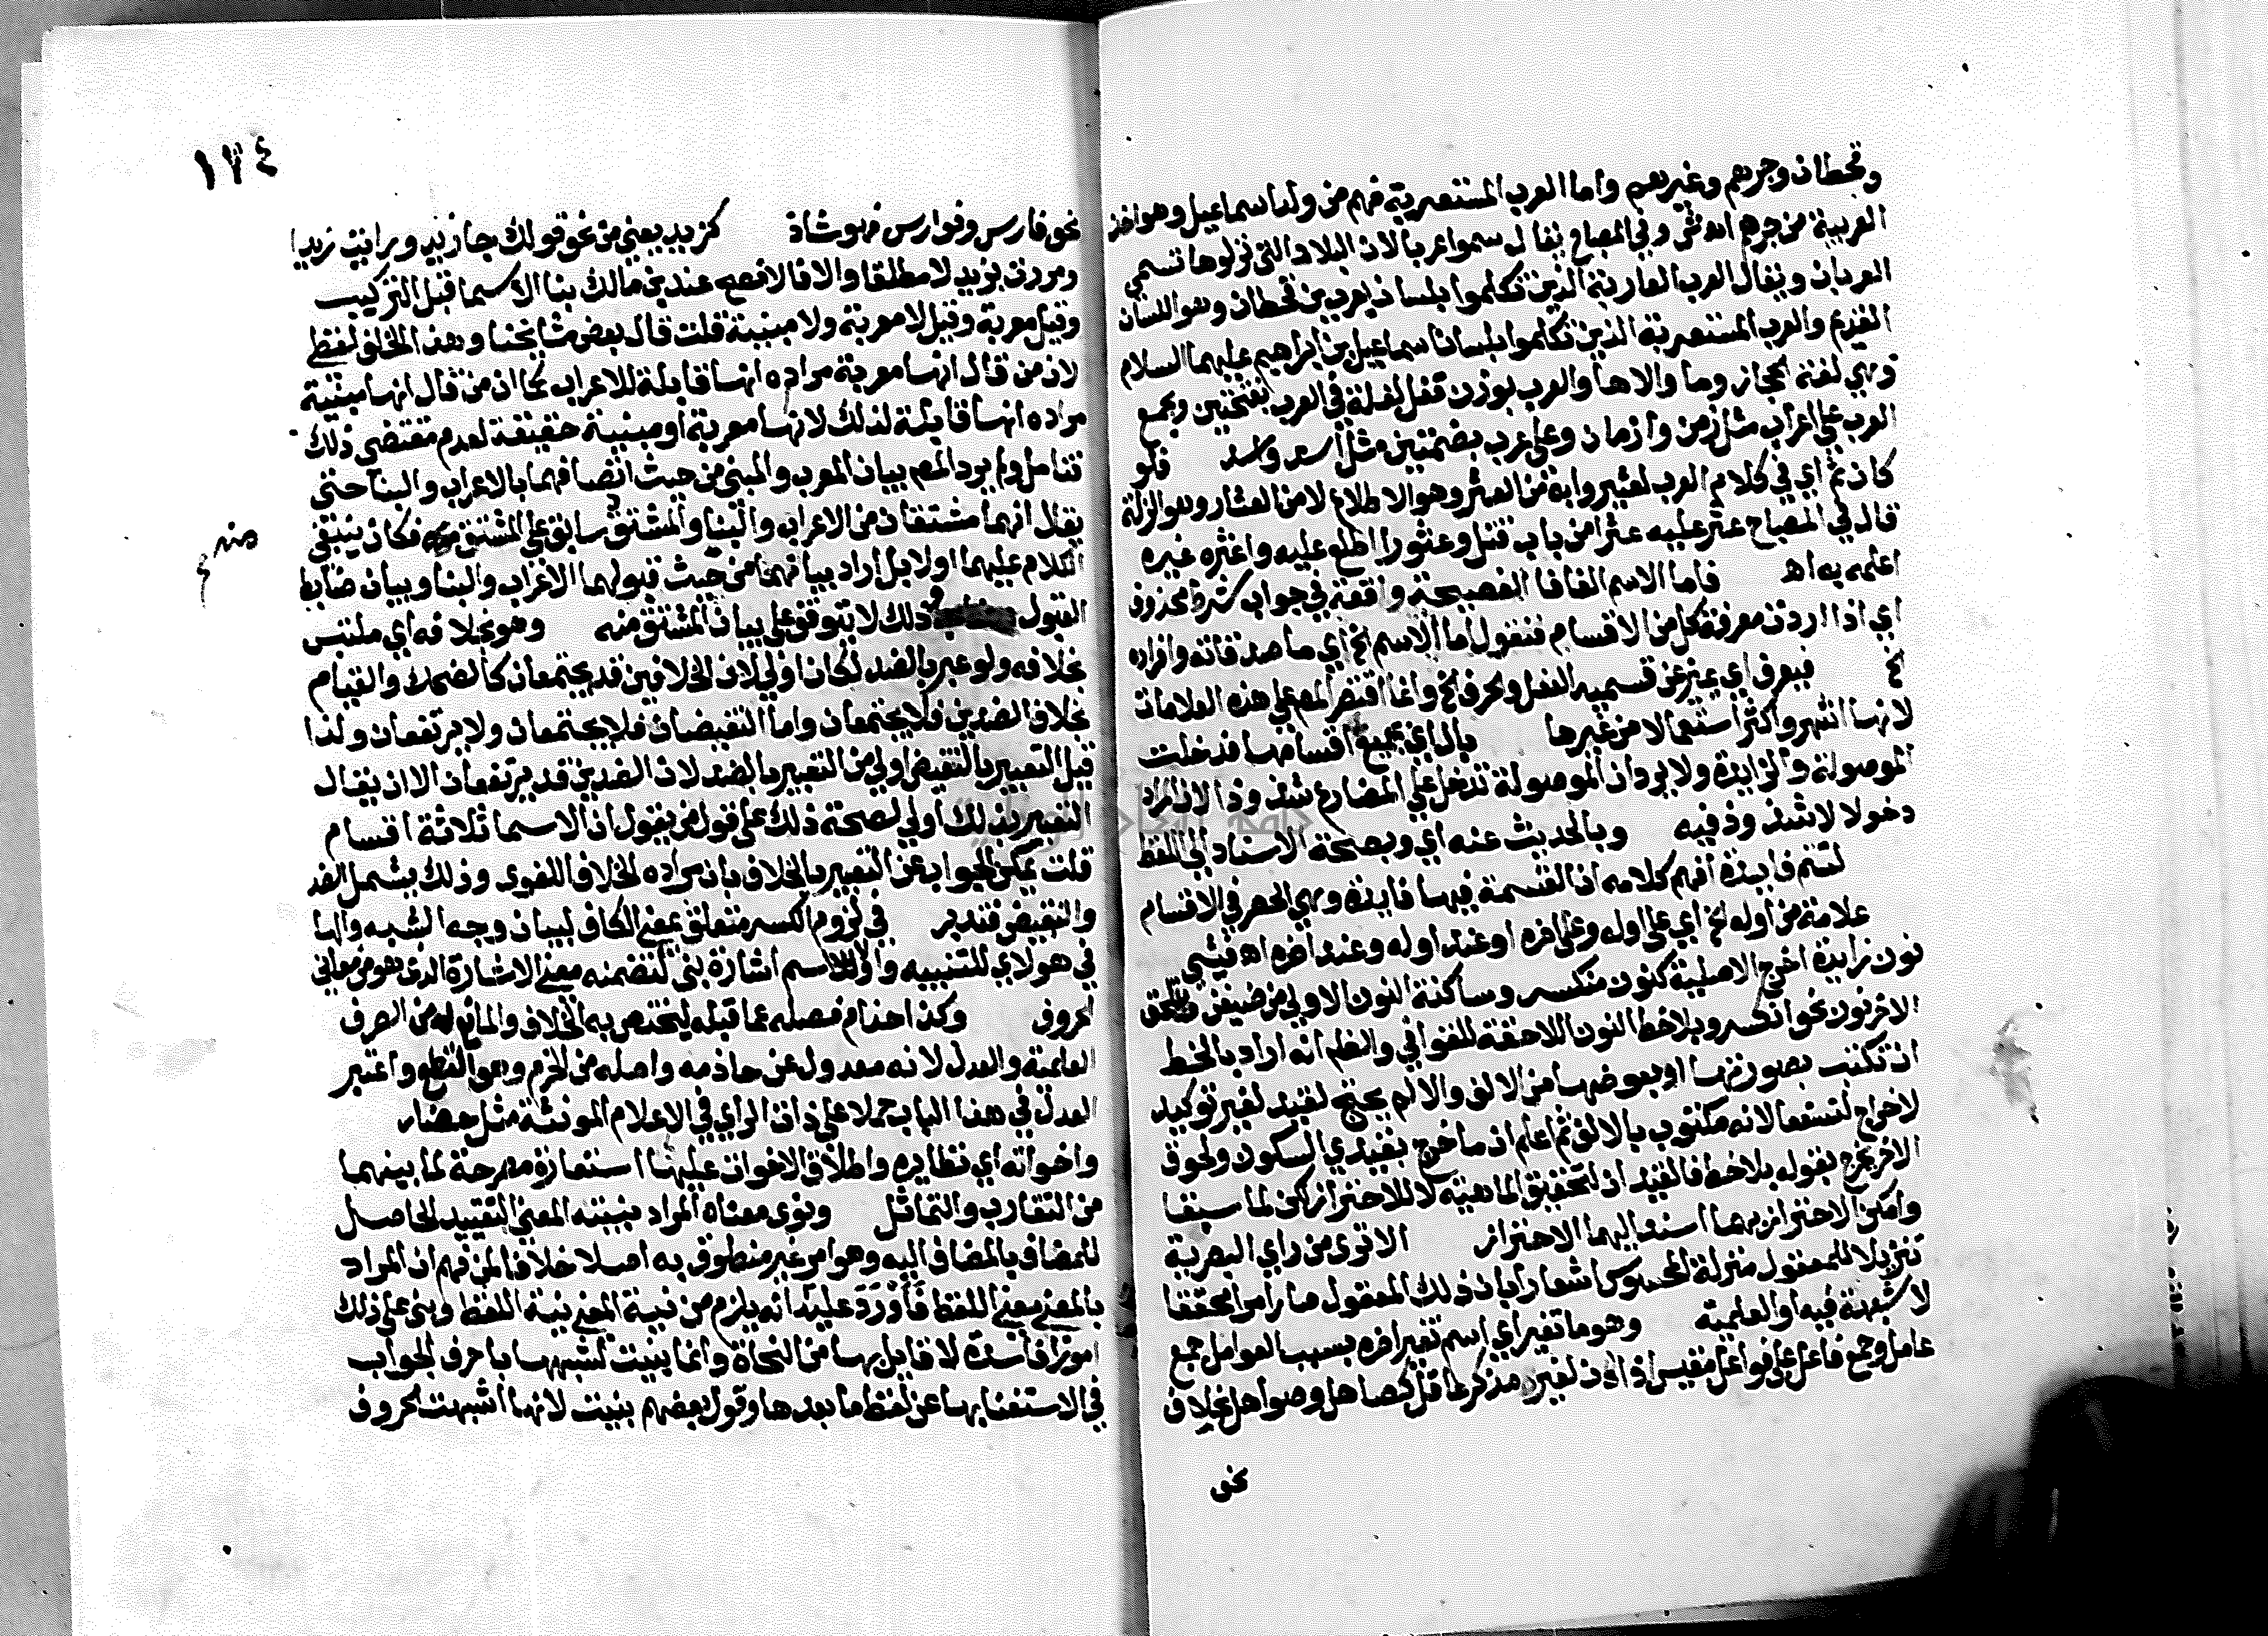 وقحطان وجرهم وغيرهم وأما العرب المستعربة فهم من ولد اسماعيل وهو اخذ
العربية من جرهم اه ش وفي المصباح يقال سموا عربا لان البلاد التي نزلوها تسمى
العربات ويقال العرب العاربة الذين تكلموا بلسان يعرب بن قحطان وهو اللسان
القديم والعرب المستعربة الذين تكلموا بلسان اسماعيل بن ابراهيم عليهما السلام
وهي لغة الحجاز وما والاها والعرب بوزن قفل لغة في العرب بفتحتين ويجمع
العرب على اعراب مثل زمن وازمان وعلى عرب بضمتين مثل اسد واسد فلو
كان ثم اي في كلام العرب لعثروا به من العثر وهو الاطلاع لا من العثار وهو الزلة
قال في المصباح عثر عليه عثرا من باب قتل وعثورا اطلع عليه واعثره غيره
اعلمه به اه فاما الاسم الفا فا الفصيحة واقعة في جواب شرط محذوف
اي اذا اردت معرفة كل من الاقسام فنقول اما الاسم الخ اي ما صدقاته وافراده
الخ فيعرف اي يميز عن قسيميه الفعل والحرف الخ وانما اقتصر المص على هذه العلامات
لانها اشهر واكثر استعمالا من غيرها بال اي بجميع اقسامها فدخلت
الموصولة والزايدة ولا يرد ان الموصولة تدخل على المضارع شذوذا لان المراد
دخولا لا شذوذ فيه وبالحديث عنه اي وبصحة الاسناد في اللفظ
لتتم فايدة افهم كلامه ان القسمة فيها فايدة وهي الحصر في الاقسام
علامة من اوله الخ اي على اوله وعلى اخره او عند اوله وعند اخره اه فيشي
نون زايدة اخرج الاصلية كنون منكسر وساكنة النون الاولى من ضيفن وتلحق
الاخر نون نحو انكسر وبلا خط النون اللاحقة للقوافي والظم انه اراد بالخط
ان تكتب بصورتها او بعوضها من الالف والا لم يحتج لقيد لغير توكيد
لاخراج لنسفعا لانه مكتوب بالالف ثم اعلم ان ما خرج بقيدي السكون ولحوق
الاخر يخرج بقوله بلا خط فالقيد ان لتحقيق الماهية لا للاحتراز لكن لما سبقا
وامكن الاحتراز بهما اسند اليهما الاحتراز الاقوى من راي البصرية
تنزيلا للمعقول منزلة المحسوس اشعارا بان ذلك المعقول صار امرا محققا
لا شبهة فيه او العلمية وهو ما تغير اي اسم تغير اخره بسبب العوامل جمع
عامل وجمع فاعل على فواعل مقيس اذا كان لغير مذكر عاقل كصاهل وصواهل بخلاف
نحو
١٣٤
نحو فارس وفوارس فهو شاذ كزيد يعني من نحو قولك جا زيد ورايت زيدا
ومررت بزيد لا مطلقا والا فالافصح عند بن مالك بنا الاسما قبل التركيب
وقيل معربة وقيل لا معربة ولا مبنية قلت قال بعض مشايخنا وهذا الخلاف لفظي
لان من قال انها معربة مراده انها قابلة للاعراب كما ان من قال انها مبنية
مراده انها قابلة لذلك لا انها معربة او مبنية حقيقة لعدم مقتضى ذلك
تتامل ولم يرد المص بيان المعرب والمبني من حيث اتصافهما بالاعراب والبنا حتى
يقال انهما مشتقان من الاعراب والبنا والمشتق سابق على المشتق منه فكان ينبغي
الكلام عليهما اولا بل اراد بيانهما من حيث قبولهما الاعراب والبنا وبيان ضابط
القبول ذلك لا يتوقف على بيان المشتق منه وهو بخلافه اي ملتبس
بخلافه ولو عبر بالضد لكان اولى لان الخلافين قد يجتمعان كالضحك والقيام
بخلاف الضدين فلا يجتمعان واما النقيضان فلا يجتمعان ولا يرتفعان ولذا
قيل التعبير بالنقيض اولى من التعبير بالضد لان الضدين قد يرتفعان الا ان يقال
التعبير بذلك اولى لصحة ذلك على قول من يقول ان الاسما ثلاثة اقسام
قلت يمكن الجواب عن التعبير بالخلاف بان مراده الخلاف اللغوي وذلك يشمل الضد
والنقيض فتدبر في لزوم الكسر متعلق بمعنى الكاف لبيان وجه الشبه والها
في هولاي للتنبيه واولاء اسم اشارة بني لتضمنه معنى الاشارة الذي هو من معاني
الحروف وكذا حذام فصله عما قبله ليختص به الخلاف والمانع له من الصرف
العلمية والعدل لانه معدول عن حاذمة واصله من الحزم وهو القطع واعتبر
العدل في هذا الباب حملا على ذات الراي في الاعلام المونثة مثل حضار
واخواته اي نظايره واطلاق الاخوات عليها استعارة مصرحة لما بينهما
من التقارب والتماثل ونوى معناه المراد بنيته المعنى التقييد الحاصل
للمضاف بالمضاف اليه وهو امر غير منطوق به اصلا خلافا لمن فهم ان المراد
بالمعنى معنى اللفظ فأورد عليه انه يلزم من نية المعنى نية اللفظ وبنى على ذلك
امورا فاسدة لا قايل بها من النحاة وانما بنيت لشبهها باحرف الجواب
في الاستغنا بها عن لفظ ما بعدها وقول بعضهم بنيت لانها اشبهت الحروف